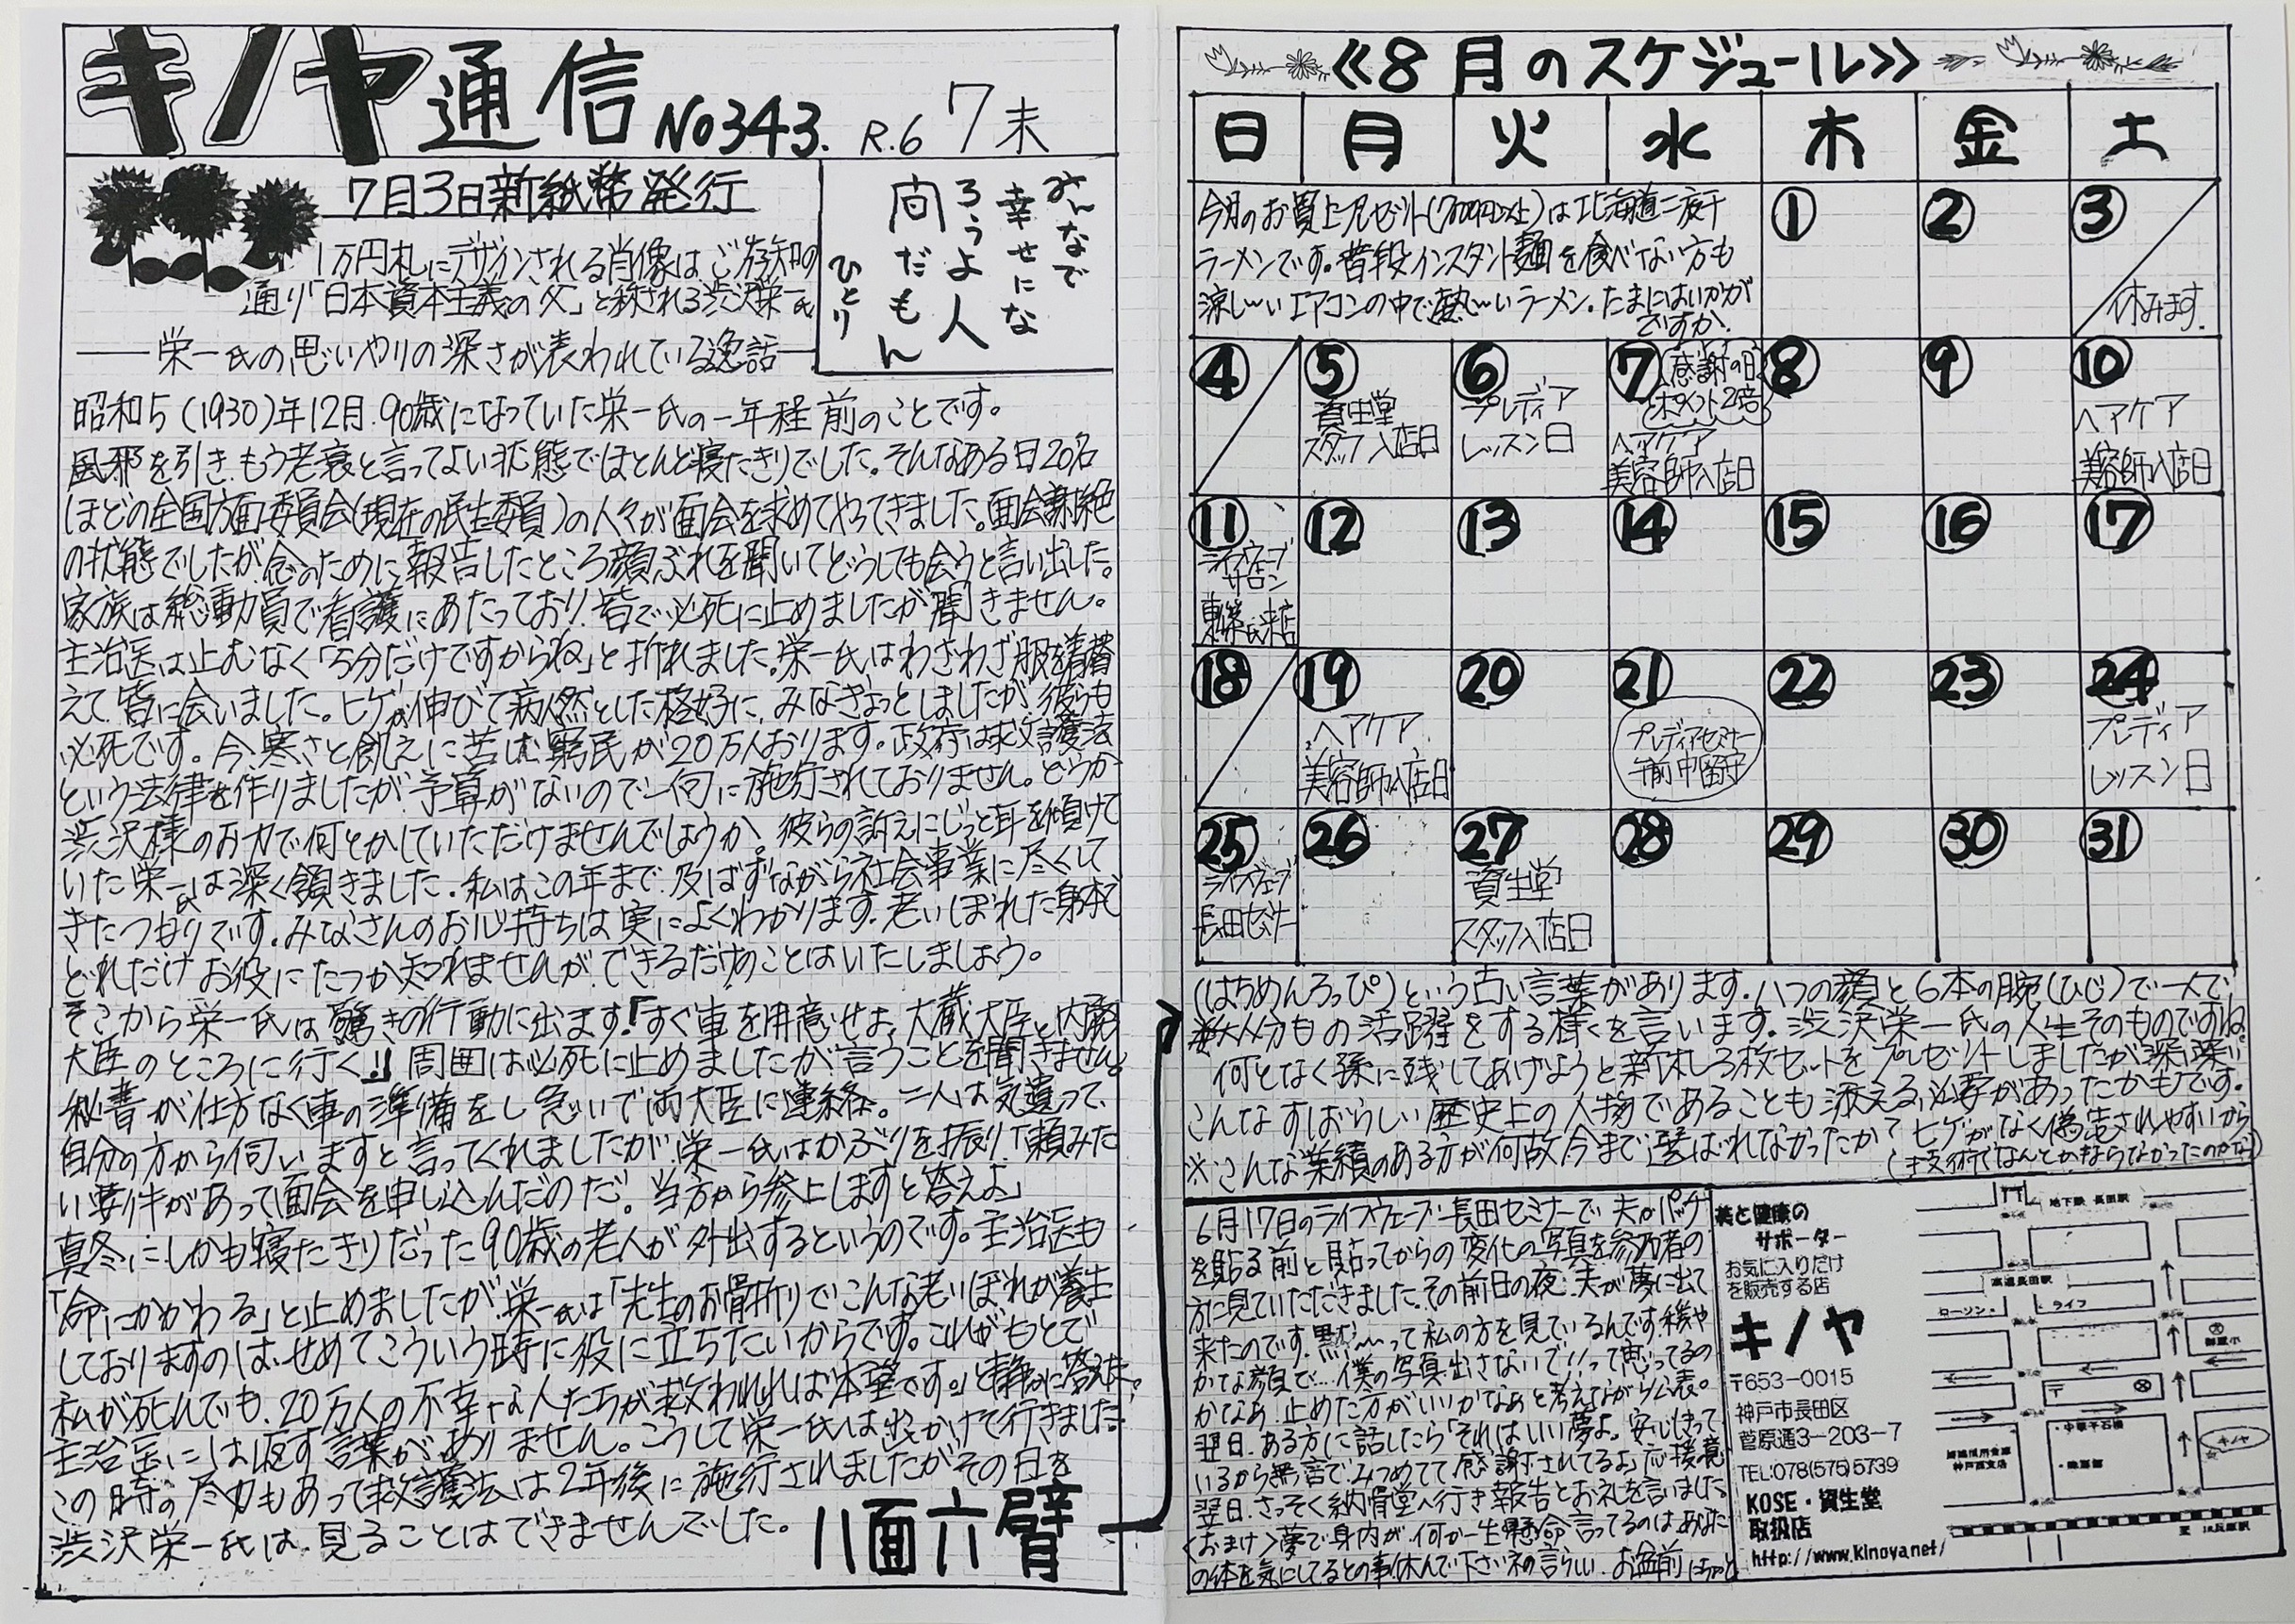 キノヤ通信 No343. R.6 7末
7月3日新紙幣発行
1万円札にデザインされる肖像はご存知の
通り「日本資本主義の父」と称される渋沢栄一氏
――栄一氏の思いやりの深さが表われている逸話――
みんなで
幸せにな
ろうよ人
間だもん
ひとり
昭和5(1930)年12月.90歳になっていた栄一氏の一年程前のことです。
風邪を引き、もう老衰と言ってよい状態でほとんど寝たきりでした。そんなある日20名
ほどの全国方面委員会(現在の民生委員)の人々が面会を求めてやってきました。面会謝絶
の状態でしたが念のために報告したところ顔ぶれを聞いてどうしても会うと言い出した。
家族は総動員で看護にあたっており皆で必死に止めましたが聞きません。
主治医は止むなく「5分だけですからね」と折れました。栄一氏はわざわざ服を着替
えて皆に会いました。ヒゲが伸びて病人然とした格好に、みなぎょっとしましたが、彼らも
必死です。今、寒さと飢えに苦しむ窮民が20万人おります。政府は救護法
という法律を作りましたが予算がないので一向に施行されておりません。どうか
渋沢様のお力で何とかしていただけませんでしょうか。彼らの訴えにじっと耳を傾けて
いた栄一氏は深く頷きました。私はこの年まで及ばずながら社会事業に尽くして
きたつもりです。みなさんのお心持ちは実によくわかります。老いぼれた身体で
どれだけお役にたつか知れませんができるだけのことはいたしましょう。
そこから栄一氏は驚きの行動に出ます!「すぐ車を用意せよ。大蔵大臣と内務
大臣のところに行く!」周囲は必死に止めましたが言うことを聞きません。
秘書が仕方なく車の準備をし急いで両大臣に連絡。二人は気遣って、
自分の方から伺いますと言ってくれましたが栄一氏はかぶりを振り「頼みた
い要件があって面会を申し込んだのだ。当方から参上しますと答えよ」
真冬にしかも寝たきりだった90歳の老人が外出するというのです。主治医も
「命にかかわる」と止めましたが栄一氏は「先生のお骨折りでこんな老いぼれが養生
しておりますのは、せめてこういう時に役に立ちたいからです。これがもとで
私が死んでも、20万人の不幸な人たちが救われれば本望です。」と静かに答えた。
主治医には返す言葉がありません。こうして栄一氏は出かけて行きました。
この時の尽力もあって救護法は2年後に施行されましたがその日を
渋沢栄一氏は見ることはできませんでした。
八面六臂
≪8月のスケジュール≫
日 月 火 水 木 金 土
今月のお買上プレゼント(7000円以上)は北海道二夜干
ラーメンです。普段インスタント麺を食べない方も
涼し〜いエアコンの中で熱〜いラーメン。たまにはいかが
ですか。
① ② ③
休みます.
④ ⑤ ⑥ ⑦ 感謝の日 ポイント2倍 ⑧ ⑨ ⑩
資生堂
スタッフ入店日
プレディア
レッスン日
ヘアケア
美容師入店日
ヘアケア
美容師入店日
⑪ ⑫ ⑬ ⑭ ⑮ ⑯ ⑰
ライフウェーブ
サロン
氏来店
⑱ ⑲ ⑳ ㉑ ㉒ ㉓ ㉔
ヘアケア
美容師入店日
プレディアセミナー
午前中留守
プレディア
レッスン日
㉕ ㉖ ㉗ ㉘ ㉙ ㉚ ㉛
ライフウェーブ
長田セミナー
資生堂
スタッフ入店日
(はちめんろっぴ)という古い言葉があります。八つの顔と6本の腕(ひじ)で一人で
何人分もの活躍をする様を言います。渋沢栄一氏の人生そのものですね。
何となく孫に残してあげようと新札3枚セットをプレゼントしましたが深い深い
こんなすばらしい歴史上の人物であることも添える必要があったかもです。
※こんな業績のある方が何故今まで選ばれなかったか?ヒゲがなく偽造されやすいから
(技術でなんとかならなかったのかな)
6月17日のライフウェーブ長田セミナーで夫がパッチ
を貼る前と貼ってからの変化の写真を参加者の
方に見ていただきました。その前日の夜、夫が夢に出て
来たのです。黙〜って私の方を見ているんです。穏や
かな顔で…僕の写真出さないで!!って思ってるの
かなあ、止めた方がいいかなあと考えながら公表。
翌日、ある方に話したら「それはいい夢よ。安心しきって
いるから無言でみつめてて感謝されてるよ」応援意
翌日、さっそく納骨堂へ行き報告とお礼を言いました。
<おまけ>夢で身内が何か一生懸命言ってるのはあなた
の体を気にしてるとの事休んで下さいネの言らしい。お盆前にちょっと
美と健康の
サポーター
お気に入りだけ
を販売する店
キノヤ
〒653-0015
神戸市長田区
菅原通3-203-7
TEL:078(575)5739
KOSE・資生堂
取扱店
http://www.kinoya.net/
地下鉄 長田駅
高速長田駅
ローソン・
・ライフ
〒
キノヤ